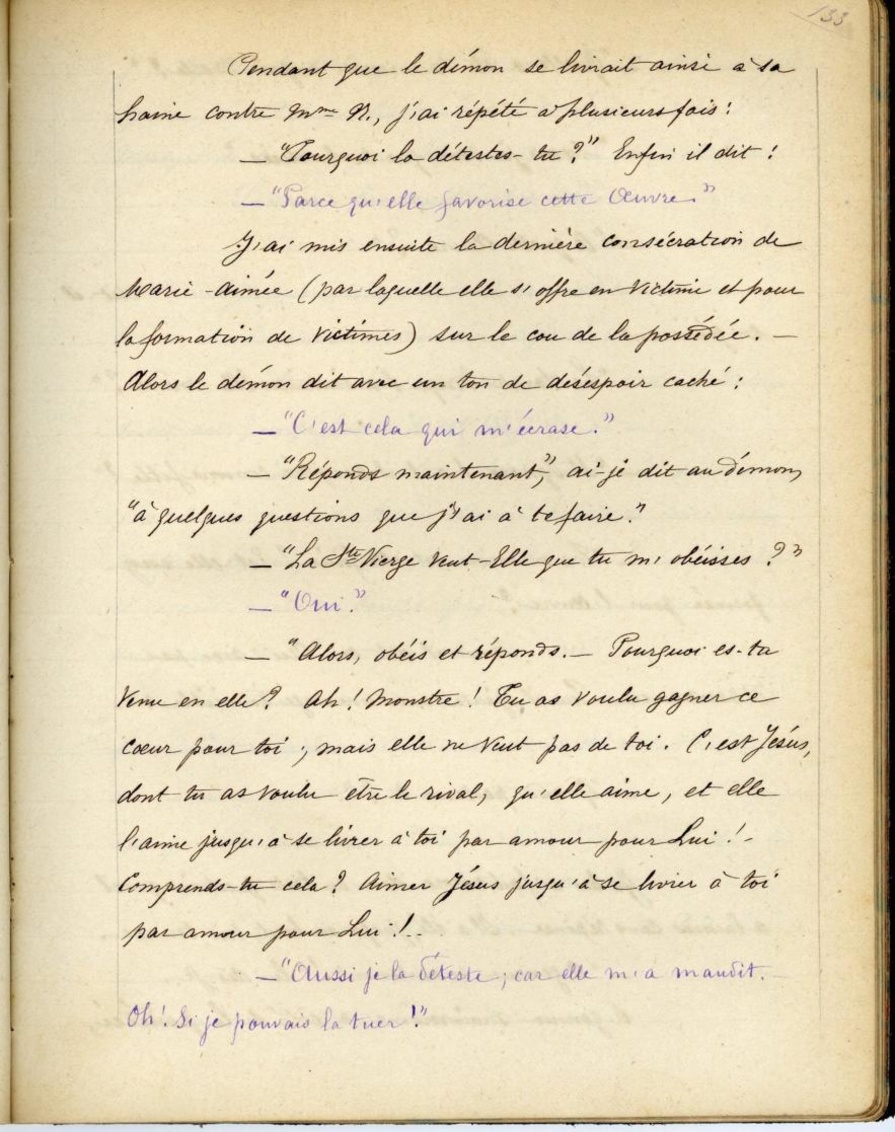 133
Pendant que le démon se livrait ainsi à sa
haine contre Mme N., j'ai répété à plusieurs fois :
— "Pourquoi la détestes-tu ?" Enfin il dit :
— "Parce qu'elle favorise cette Œuvre."
J'ai mis ensuite la dernière consécration de
Marie-Aimée (par laquelle elle s'offre en victime et pour
la formation de victimes) sur le cou de la possédée. —
Alors le démon dit avec un ton de désespoir caché :
— "C'est cela qui m'écrase."
— "Réponds maintenant", ai-je dit au démon,
"à quelques questions que j'ai à te faire."
— "La Ste Vierge veut-Elle que tu m'obéisses ?"
— "Oui."
— "Alors, obéis et réponds. — Pourquoi es-tu
venu en elle ? Ah ! Monstre ! Tu as voulu gagner ce
cœur pour toi ; mais elle ne veut pas de toi. C'est Jésus,
dont tu as voulu être le rival, qu'elle aime, et elle
l'aime jusqu'à se livrer à toi par amour pour Lui !..
Comprends-tu cela ? Aimer Jésus jusqu'à se livrer à toi
par amour pour Lui !..
— "Aussi je la déteste ; car elle m'a maudit.
Oh ! Si je pouvais la tuer !"